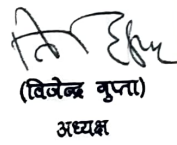 (विजेन्द्र गुप्ता)
अध्यक्ष